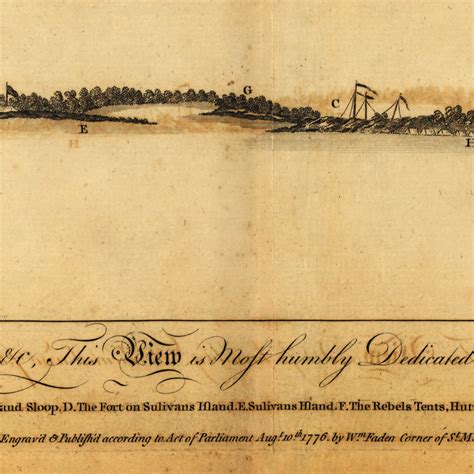 G
C
E
H
&c, This View is Most humbly Dedicated
and Sloop, D. The Fort on Sulivans Island. E. Sulivans Island. F. The Rebels Tents, Huts
Engrav'd & Publish'd according to Act of Parliament Augt. 10th 1776. by Wm. Faden Corner of St. M